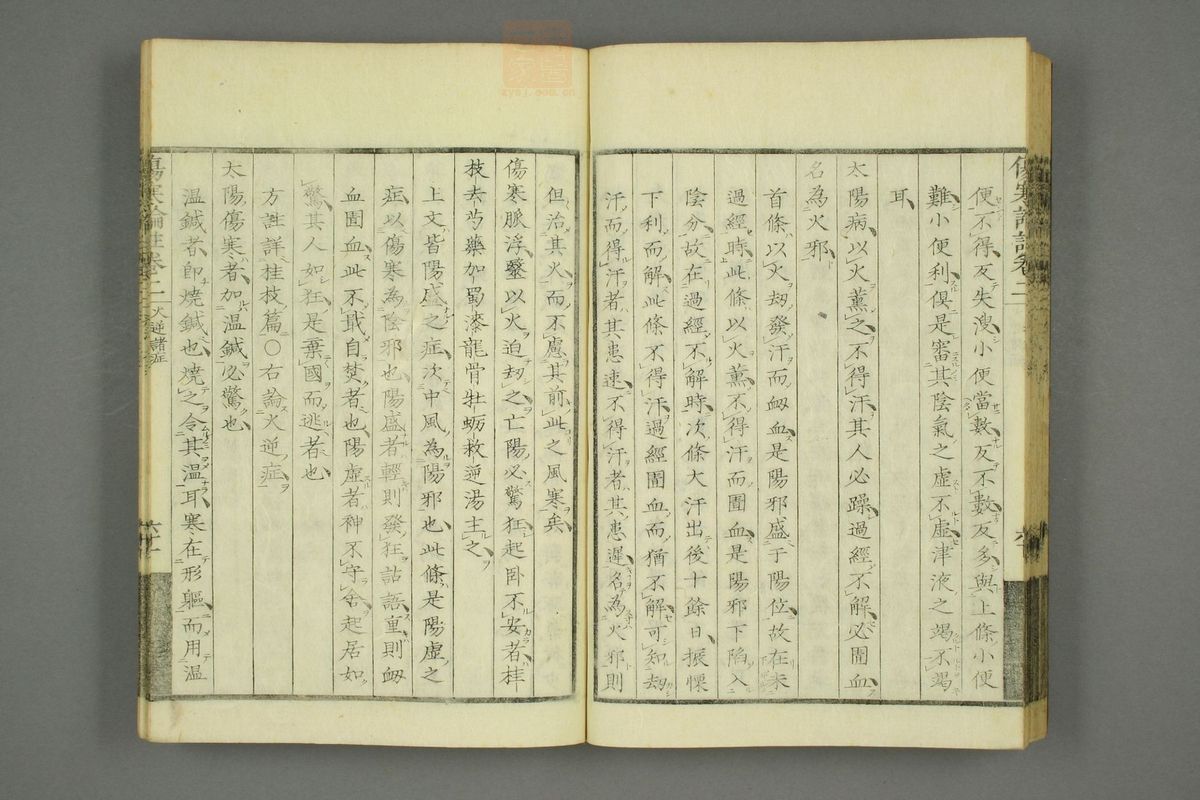 便不得反失溲小便當數反不數反多與上條小便
難小便利俱是審其陰氣之虛不虛津液之竭不竭
耳
太陽病以火薰之不得汗其人必躁過經不解必圊血
名為火邪
首條以火劫發汗而衂血是陽邪盛于陽位故在未
過經時此條以火薰不得汗而圊血是陽邪下陷入
陰分故在過經不解時次條大汗出後十餘日振慄
下利而解此條不得汗過經圊血而猶不解可知劫
汗而得汗者其患速不得汗者其患遲名為火邪則
但治其火而不慮其前此之風寒矣
傷寒脈浮醫以火迫劫之亡陽必驚狂起卧不安者桂
枝去芍藥加蜀漆龍骨牡蛎救逆湯主之
上文皆陽盛之症次中風為陽邪也此條是陽虛之
症以傷寒為陰邪也陽盛者輕則發狂詀語重則衂
血圊血此不戢自焚者也陽虛者神不守舍起居如
驚其人如狂是棄國而逃者也
方註詳桂枝篇○右論火逆症
太陽傷寒者加温鍼必驚也
温鍼者即燒鍼也燒之令其温耳寒在形軀而用温
傷寒論註卷二
火逆諸症
六十